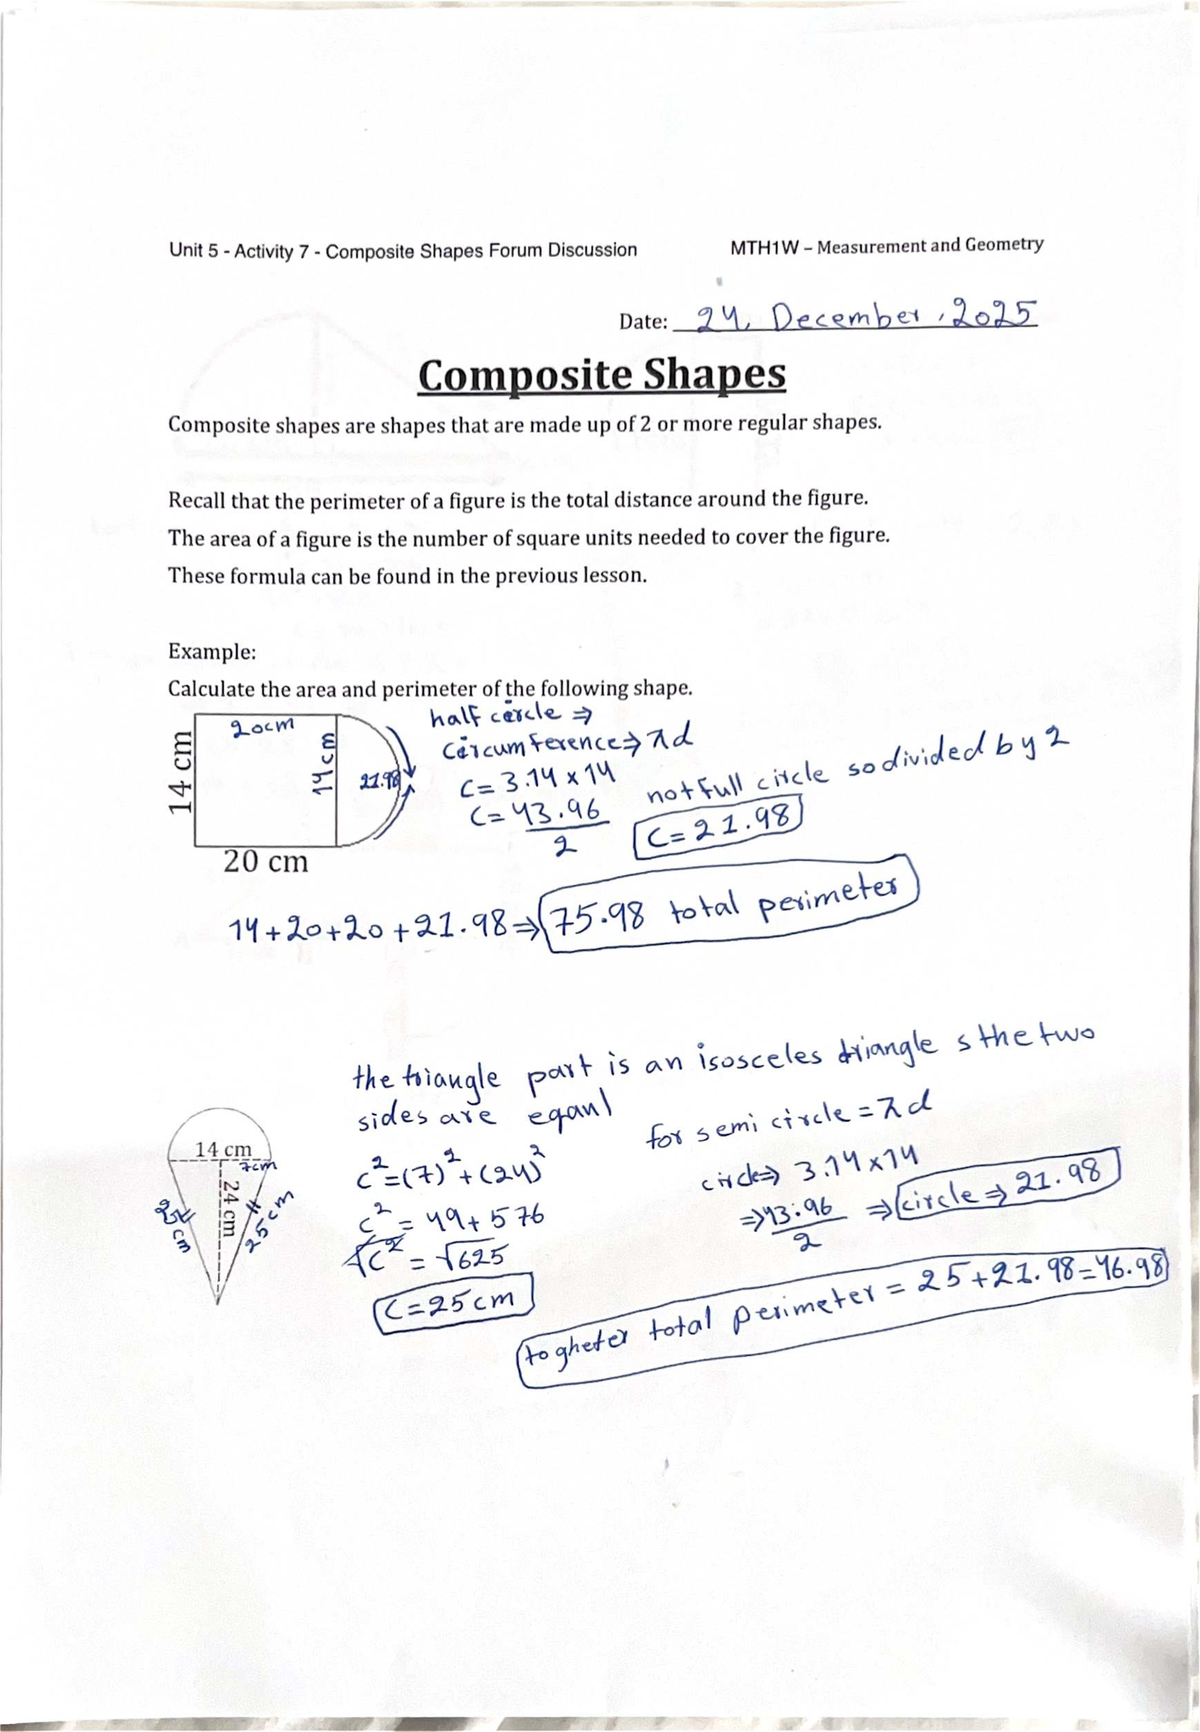 Unit 5 - Activity 7 - Composite Shapes Forum Discussion MTH1W – Measurement and Geometry
Date: 24, December, 2025
Composite Shapes
Composite shapes are shapes that are made up of 2 or more regular shapes.
Recall that the perimeter of a figure is the total distance around the figure.
The area of a figure is the number of square units needed to cover the figure.
These formula can be found in the previous lesson.
Example:
Calculate the area and perimeter of the following shape.
14 cm
20cm
14cm
21.98
20 cm
half circle ⇒
Circumference ⇒ πd
C = 3.14 x 14
C = 43.96
2
not full circle so divided by 2
C = 21.98
14 + 20 + 20 + 21.98 ⇒ 75.98 total perimeter
the triangle part is an isosceles triangle s the two
sides are eqaul
14 cm
7cm
24 cm
cm
25cm
c² = (7)² + (24)²
c² = 49 + 576
√c² = √625
C = 25cm
for semi circle = πd
circle ⇒ 3.14 x 14
⇒ 43.96
2
⇒ circle ⇒ 21.98
togheter total perimeter = 25 + 21.98 = 46.98